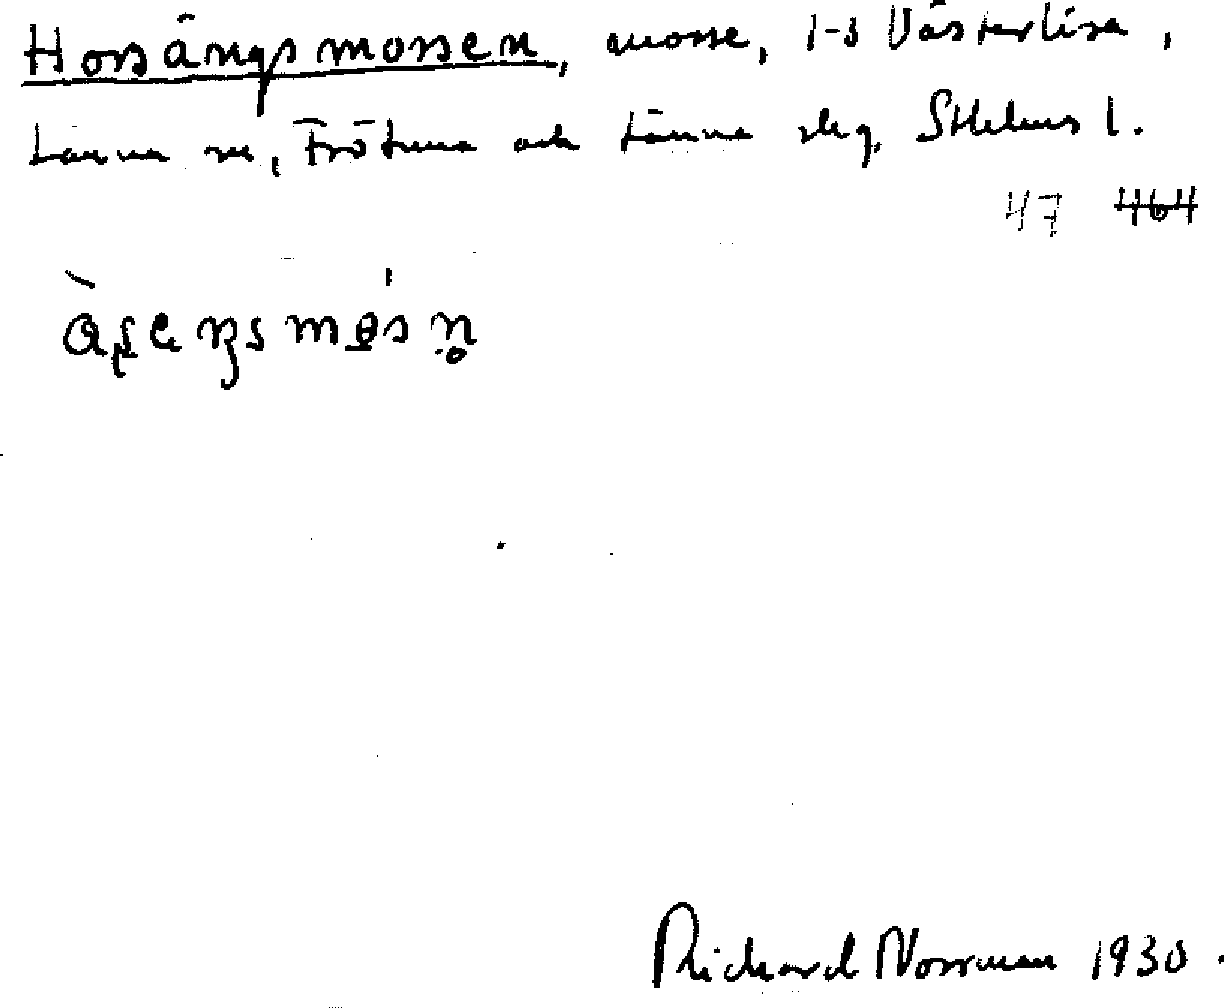 Horsängsmossen, mosse, 1-3 Västerlisa,
Länna sn, Frötuna och Länna skg, Sthlms l.
47 464
Richard Norrman 1930.